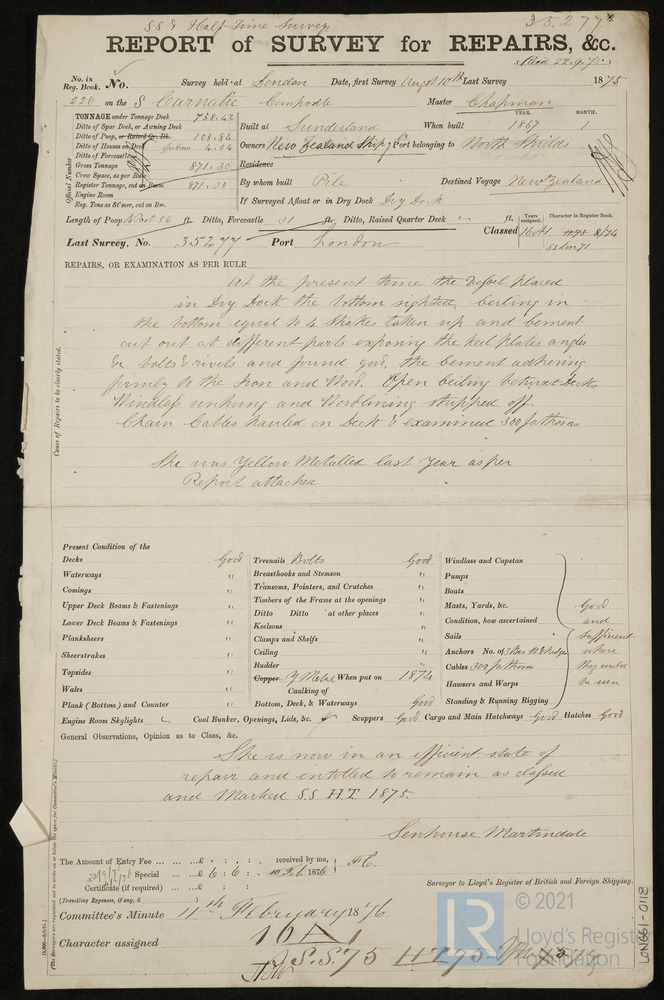 SS & Half Time Survey
35277
REPORT of SURVEY for REPAIRS, &c.
(Recd 22.9.75)
No. in Reg. Book. No. Survey held at London Date, first Survey Augst 10th Last Survey 1875
226 on the S Carnatic Composite Master Chapman
TONNAGE under Tonnage Deck 758.42
Ditto of Spar Deck, or Awning Deck
Ditto of Poop, or Raised Qr. Dk. 108.84
Ditto of Houses on Deck 4.04
Ditto of Forecastle
Gross Tonnage 871.30
Crew Space, as per Rule
Register Tonnage, cut on Beam 871.30
Engine Room
Reg. Tons as St'mer, cut on Bm.
Official Number
YEAR. MONTH.
Built at Sunderland When built 1867 1
Owners New Zealand Ship Co Port belonging to North Shields
Residence
By whom built Pile Destined Voyage New Zealand
If Surveyed Afloat or in Dry Dock Dry Dock
Length of Poop 56 ft. Ditto, Forecastle 31 ft. Ditto, Raised Quarter Deck ft.
Years assigned. Character in Register Book.
Classed 16 A1 8/74
SS Lon 71
Last Survey, No. 35277 Port London
REPAIRS, OR EXAMINATION AS PER RULE
Cause of Repairs to be clearly stated.
At the present time the Vessel placed
in Dry Dock the bottom sighted, ceiling in
the bottom equal to 4 Shakes taken up and cement
cut out at different parts exposing the keel plates angles
& bolts & rivets and found good, the cement adhering
firmly to the Iron and Wood. Open ceiling betwixt Decks
Windlass unhung and Woodlining stripped off.
Chain Cables hauled on Deck & examined 300 fathoms
She was Yellow Metalled last year as per
Report attached
Present Condition of the
Decks Good
Waterways "
Comings "
Upper Deck Beams & Fastenings "
Lower Deck Beams & Fastenings "
Planksheers "
Sheerstrakes "
Topsides "
Wales "
Plank (Bottom) and Counter "
Treenails Bolts Good
Breasthooks and Stemson "
Transoms, Pointers, and Crutches "
Timbers of the Frame at the openings "
Ditto Ditto at other places "
Keelsons "
Clamps and Shelfs "
Ceiling "
Rudder "
Copper Y Metal When put on 1874
Caulking of
Bottom, Deck, & Waterways Good
Windlass and Capstan
Pumps
Boats
Masts, Yards, &c.
Condition, how ascertained
Sails
Anchors No. of
Cables 300 fathoms
Hawsers and Warps
Standing & Running Rigging
Good
and
Sufficient
where
they could
be seen
Engine Room Skylights Coal Bunker, Openings, Lids, &c. Scuppers Good Cargo and Main Hatchways Good Hatches Good
General Observations, Opinion as to Class, &c.
She is now in an efficient state of
repair and entitled to remain as classed
and Marked SS H.T. 1875.
Senhouse Martindale
The Amount of Entry Fee ... ... £ : : received by me,
Special ... ... £ 6 : 6 : 10 Feb 1876
Certificate (if required) ... ... £ : :
(Travelling Expenses, if any, £
Surveyor to Lloyd's Register of British and Foreign Shipping.
Committee's Minute 11th February 1876
Character assigned 16 A 1
S.S. 75 H T 75
© 2021
LR
Lloyd's Register
Foundation
LON661-0118